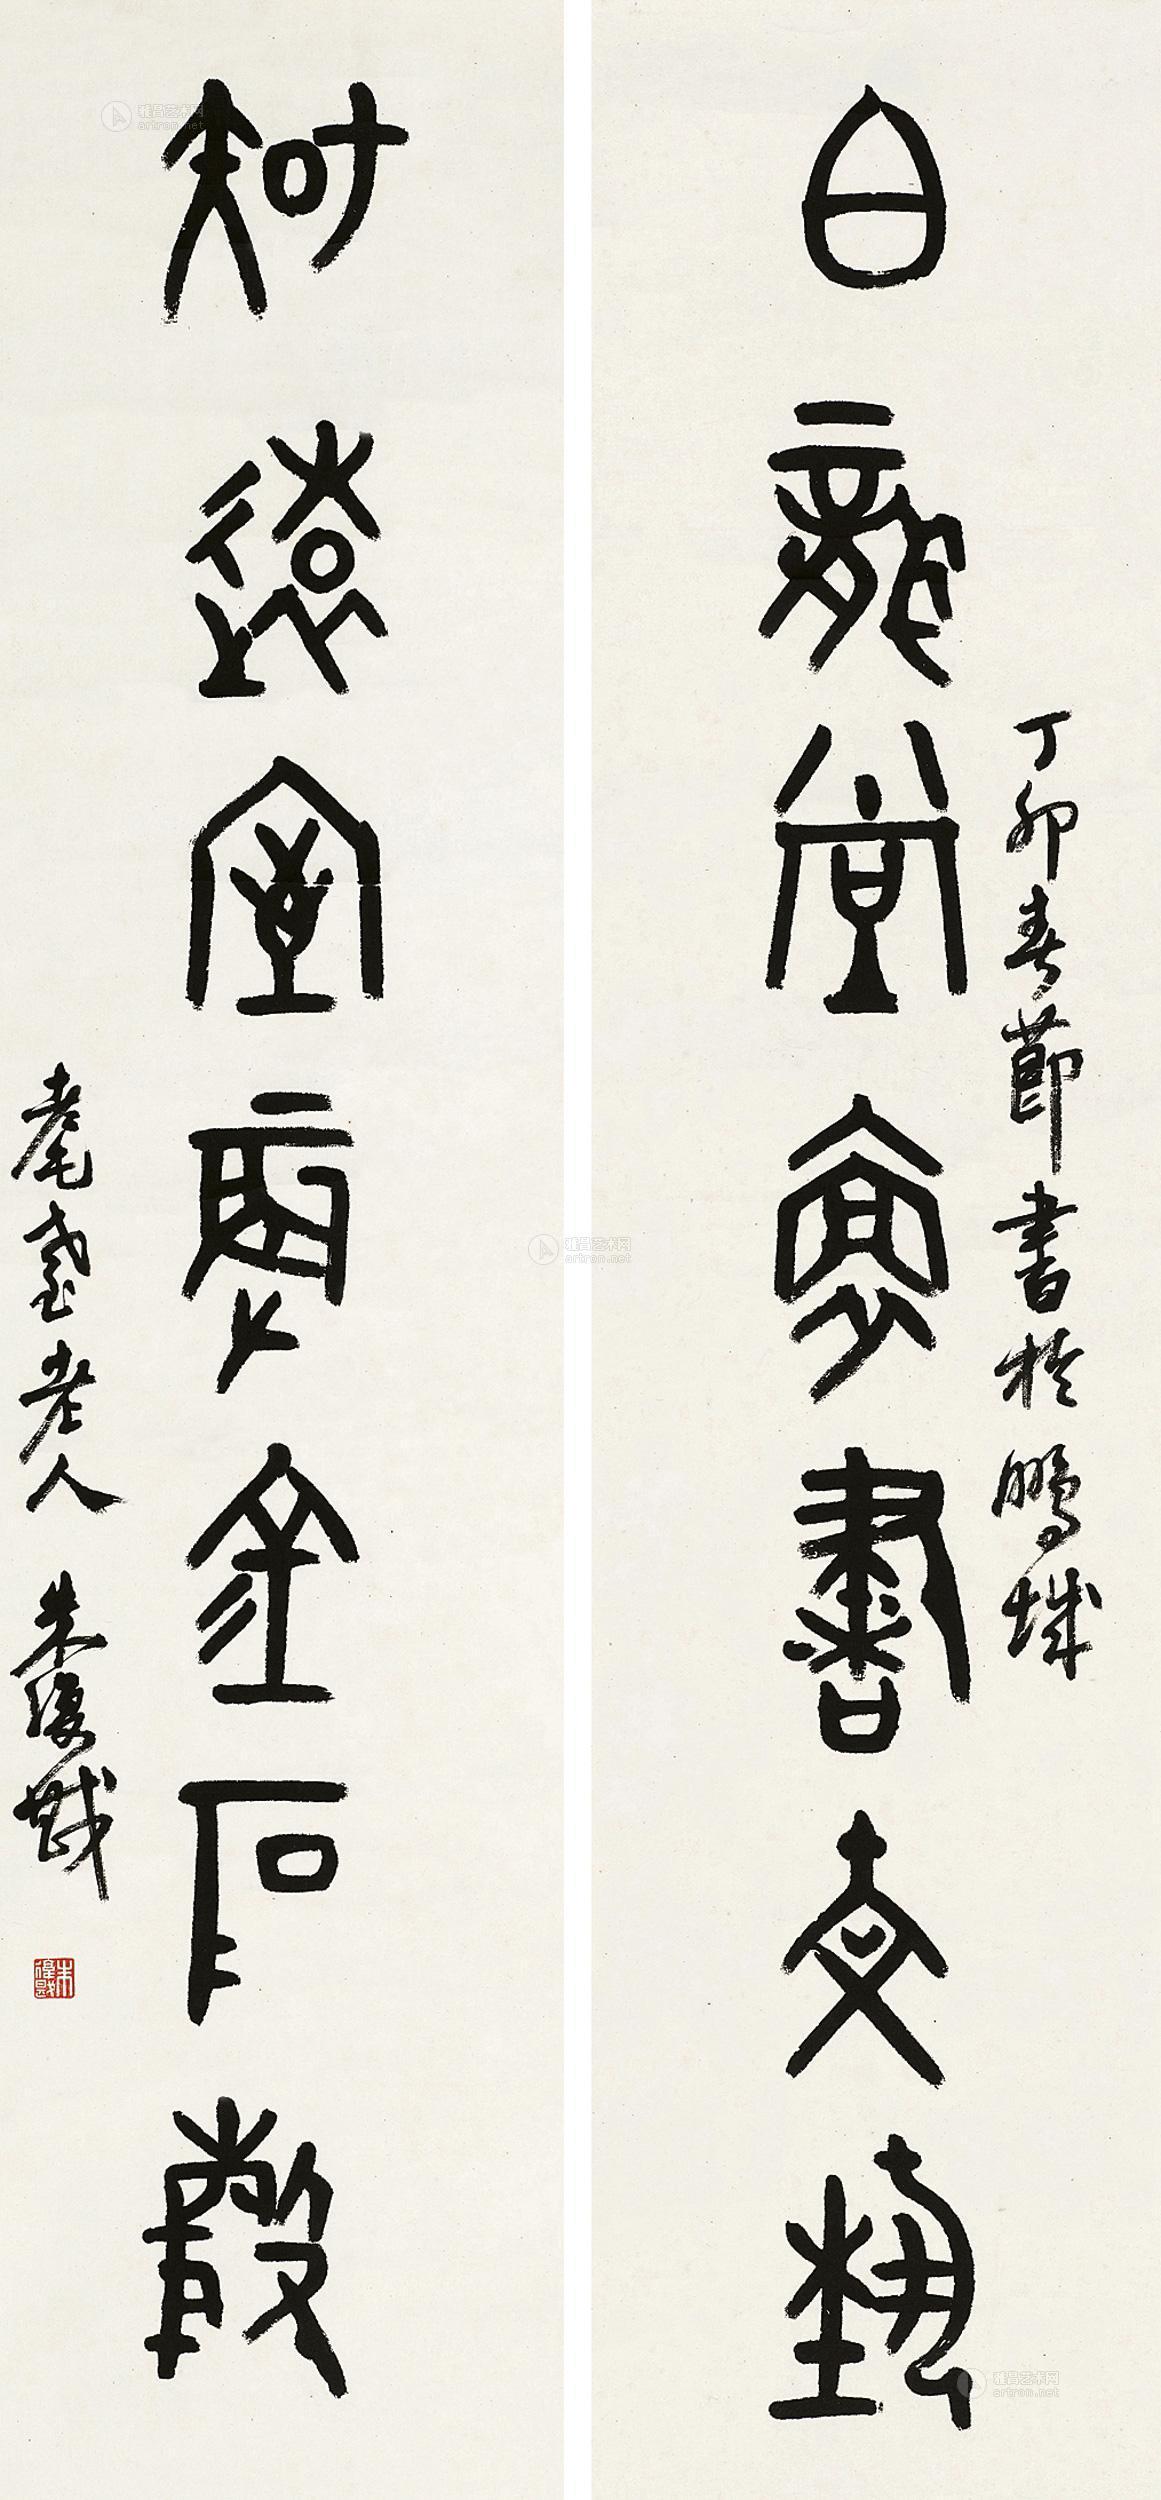 白龍堂書文藝
丁卯春節書於鵬城
知遠室金石
耄耋老人 朱復戡
朱復戡
雅昌艺术网
artron.net
雅昌艺术网
artron.net
雅昌艺术网
artron.net